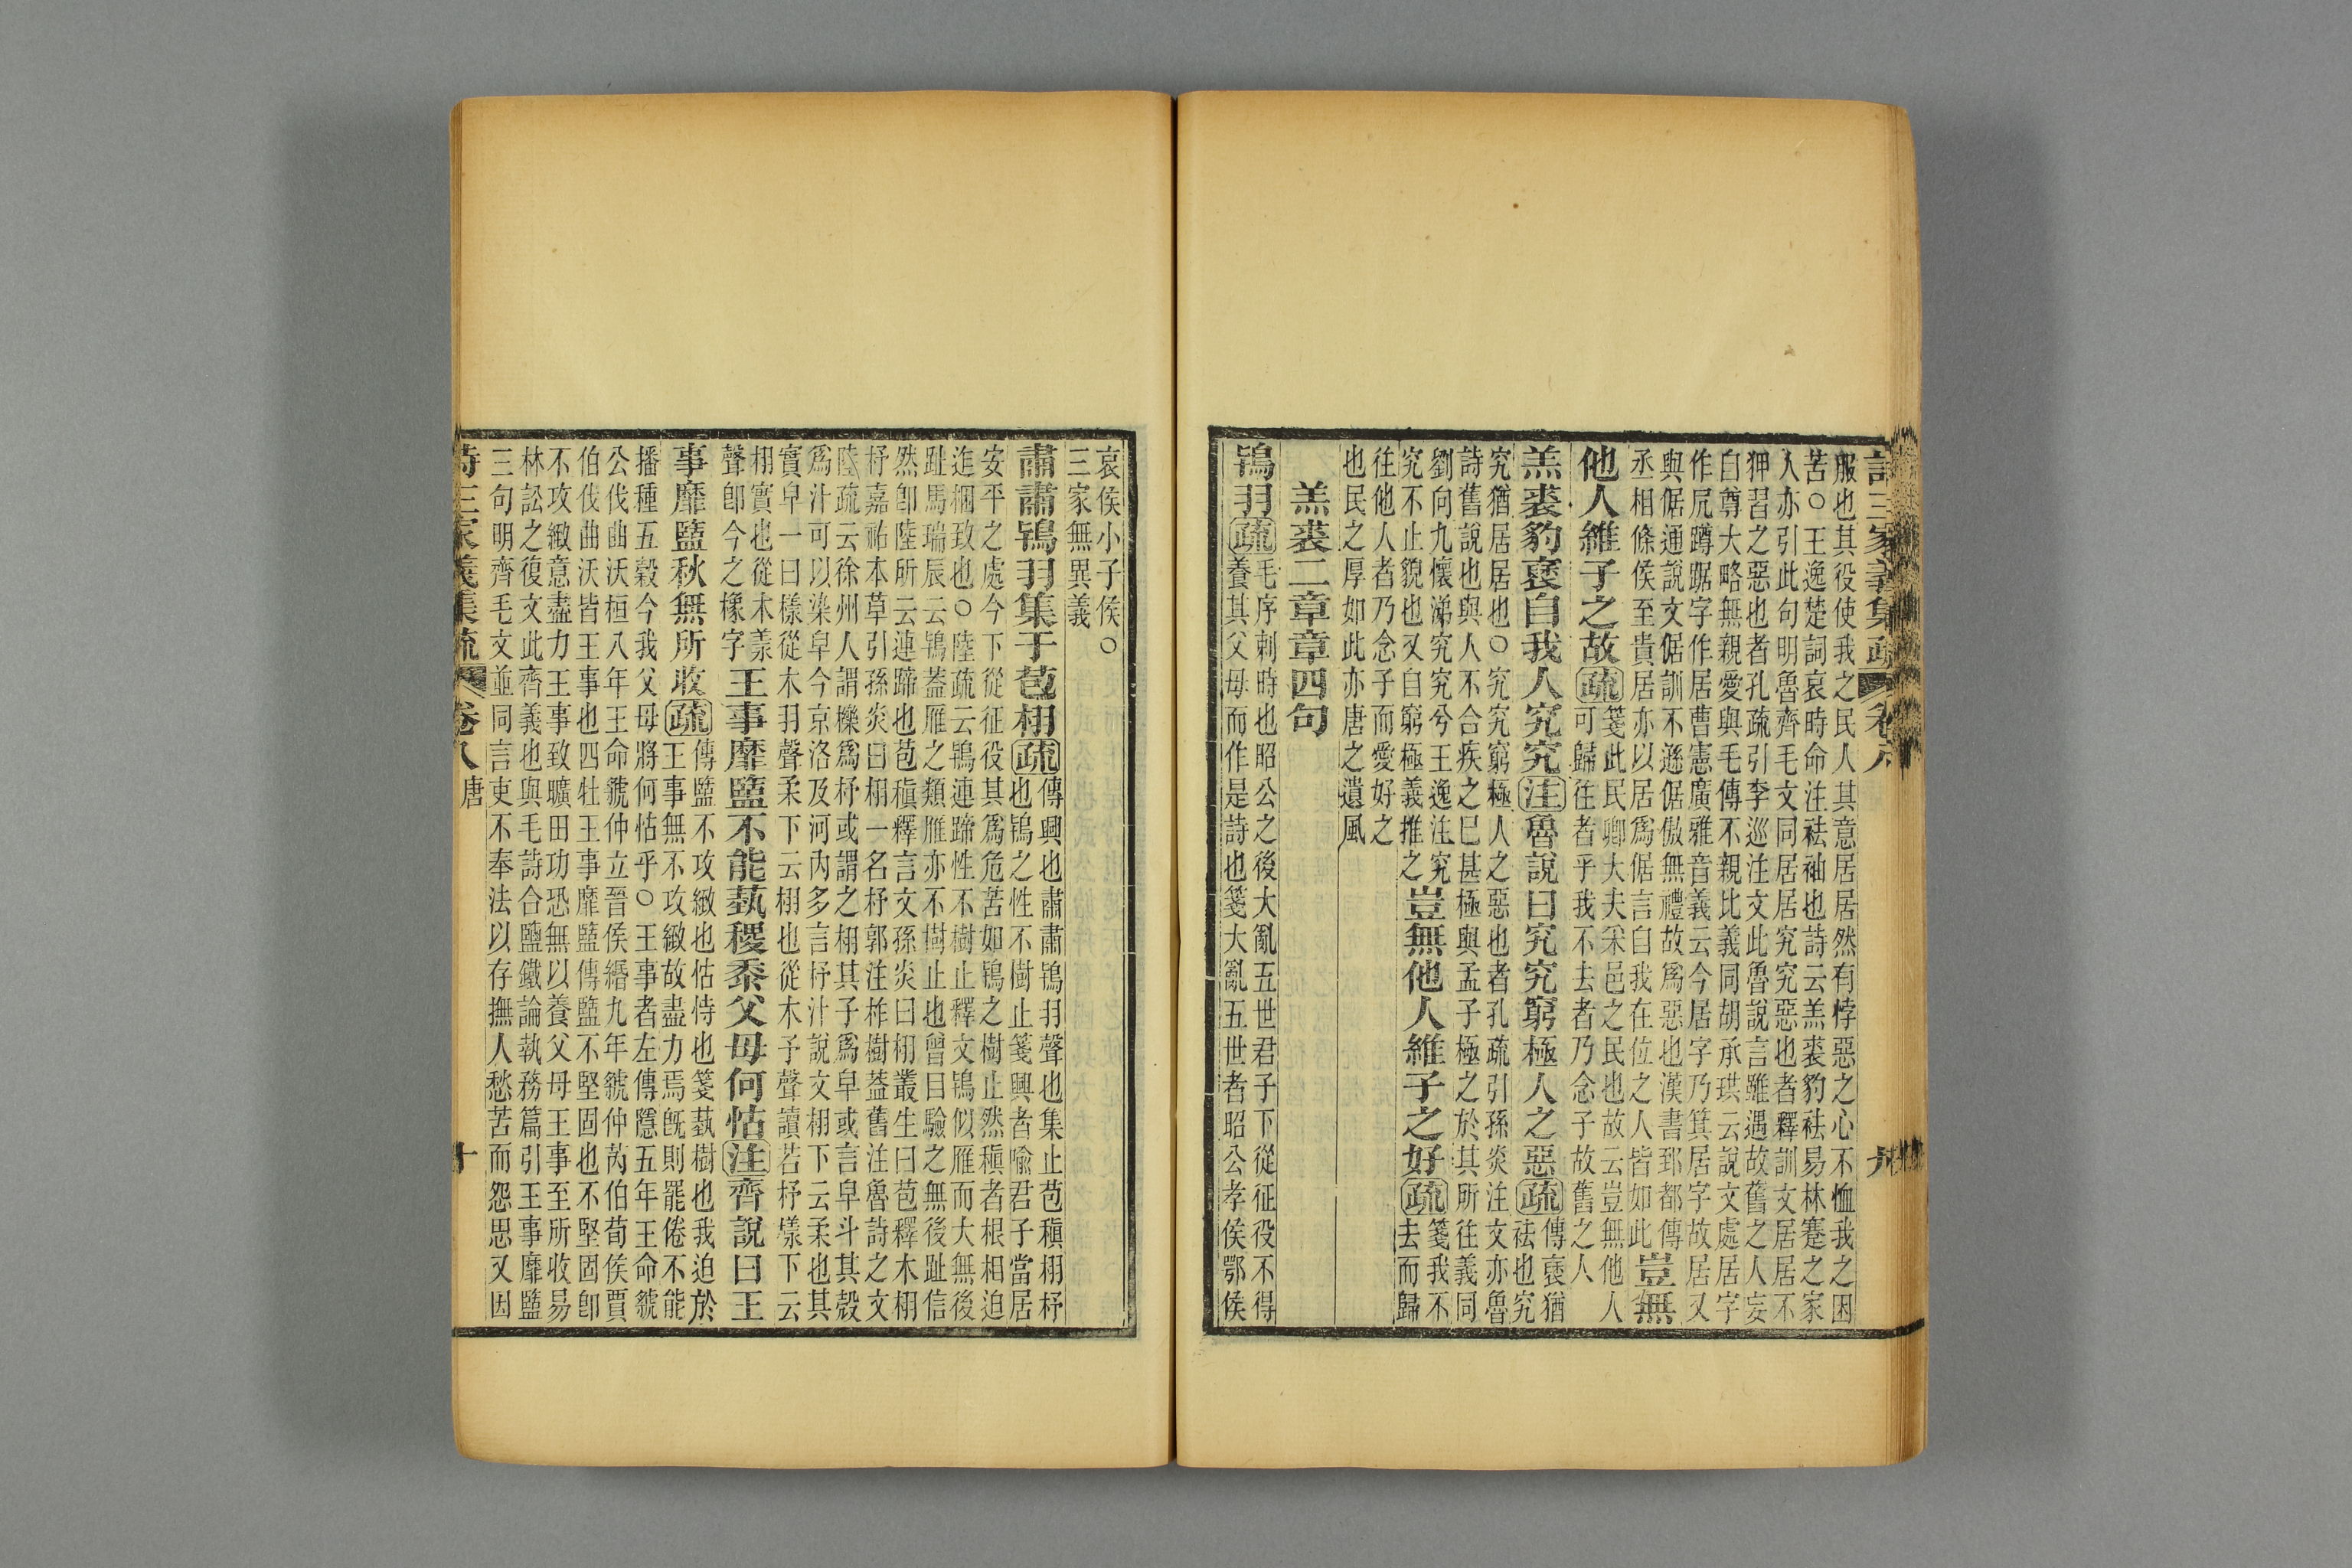 詩三家義集疏 卷八 九
服也其役使我之民人其意居居然有悖惡之心不恤我之困
苦○王逸楚詞哀時命注袪袖也詩云羔裘豹袪易林蹇之家
人亦引此句明魯齊毛文同居居究究惡也者釋訓文居居不
狎習之惡也者孔疏引李巡注文此魯說言雖遇故舊之人妄
自尊大略無親愛與毛傳不親比義同胡承珙云說文處居字
作凥蹲踞字作居曹憲廣雅音義云今居字乃箕居字故居又
與倨通說文倨訓不遜倨傲無禮故爲惡也漢書郅都傳
丞相條侯至貴居亦以居爲倨言自我在位之人皆如此
豈無
他人維子之故疏
箋此民卿大夫采邑之民也故云豈無他人
可歸往者乎我不去者乃念子故舊之人
羔裘豹褎自我人究究注魯說曰究究窮極人之惡疏
傳褎猶
袪也究
究猶居居也○究究窮極人之惡也者孔疏引孫炎注文亦魯
詩舊說也與人不合疾之巳甚極與孟子極之於其所往義同
劉向九懷涕究究兮王逸注究
究不止貌也又自窮極義推之
豈無他人維子之好疏
箋我不
去而歸
往他人者乃念子而愛好之
也民之厚如此亦唐之遺風
羔裘二章章四句
鴇羽疏
毛序刺時也昭公之後大亂五世君子下從征役不得
養其父母而作是詩也箋大亂五世者昭公孝侯鄂侯
哀侯小子侯○
三家無異義
肅肅鴇羽集于苞栩疏
傳興也肅肅鴇羽聲也集止苞稹栩杼
也鴇之性不樹止箋興者喻君子當居
安平之處今下從征役其爲危苦如鴇之樹止然稹者根相迫
迮梱致也○陸疏云鴇連蹄性不樹止釋文鴇似雁而大無後
趾馬瑞辰云鴇蓋雁之類雁亦不樹止也曾目驗之無後趾信
然卽陸所云連蹄也苞稹釋言文孫炎曰栩叢生曰苞釋木栩
杼嘉祐本草引孫炎曰栩一名杼郭注柞樹蓋舊注魯詩之文
陸疏云徐州人謂櫟爲杼或謂之栩其子爲皁或言皁斗其殼
爲汁可以染皁今京洛及河內多言杼汁說文栩下云柔也其
實皁一曰樣從木羽聲柔下云栩也從木予聲讀若杼樣下云
栩實也從木羕
聲卽今之橡字
王事靡盬不能蓺稷黍父母何怙注齊說曰王
事靡盬秋無所收疏
傳盬不攻緻也怙恃也箋蓺樹也我迫於
王事無不攻緻故盡力焉旣則罷倦不能
播種五穀今我父母將何怙乎○王事者左傳隱五年王命虢
公伐曲沃桓八年王命虢仲立晉侯緡九年虢仲芮伯荀侯賈
伯伐曲沃皆王事也四牡王事靡盬傳盬不堅固也不堅固卽
不攻緻意盡力王事致曠田功恐無以養父母王事至所收易
林訟之復文此齊義也與毛詩合鹽鐵論執務篇引王事靡盬
三句明齊毛文並同言吏不奉法以存撫人愁苦而怨思又因
詩三家義集疏 卷八 唐 十